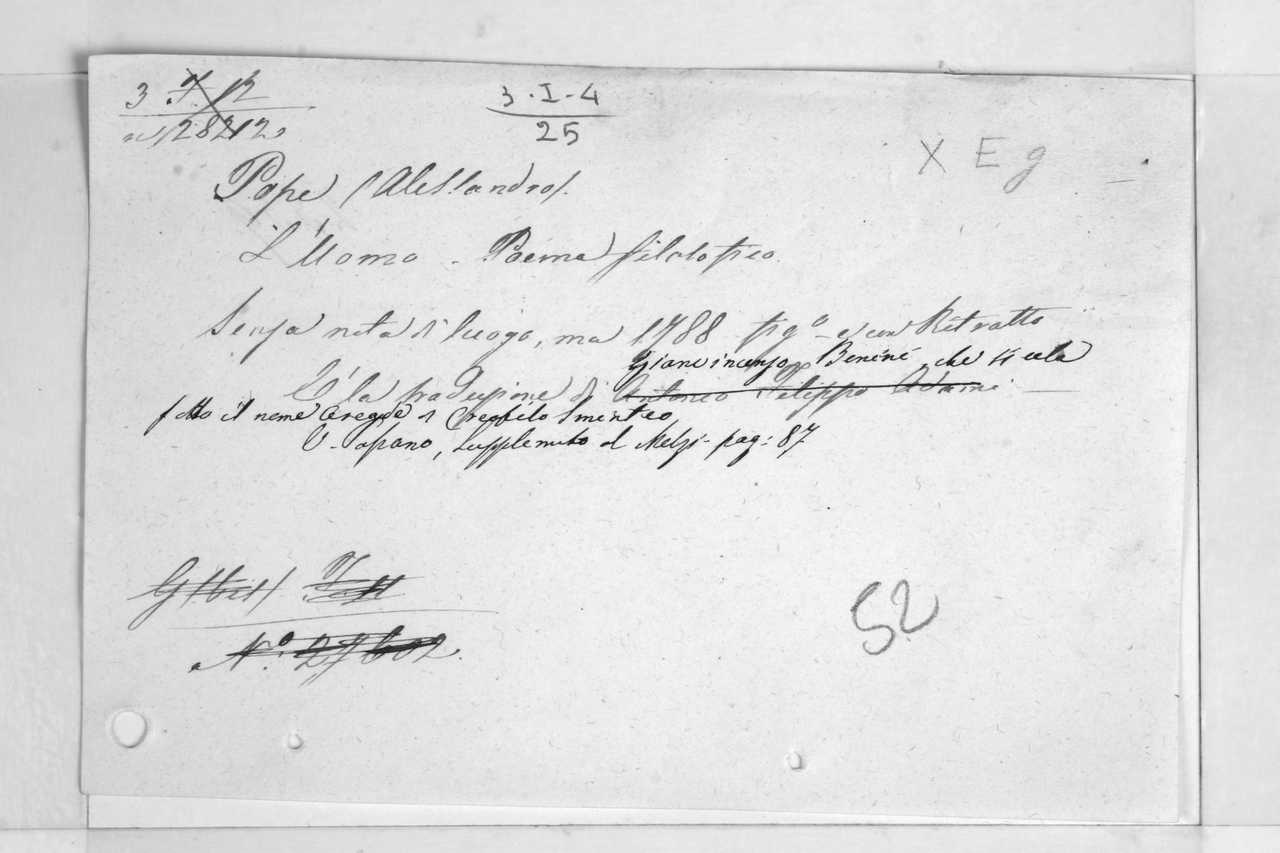 3 I. 12
28212
3 · I - 4
25
X E g
Pope (Alessandro).
L'Uomo - Poema filosofico.
Senza nota di luogo, ma 1788 fig° e con Ritratto
Gianvincenzo Benini che si cela
È la traduzione di Antonio Filippo Adami.
sotto il nome di Creofilo Sminteo
V. Passano, Supplemento al Melzi - pag: 87
52
N.° 27602.